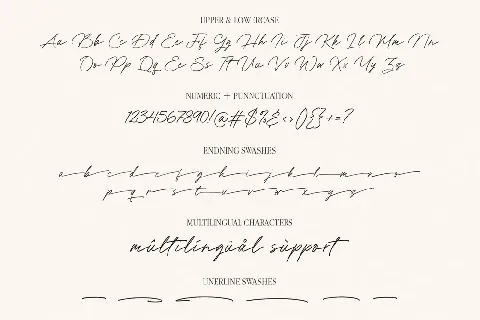 UPPER & LOWERCASE
Aa Bb Cc Dd Ee Ff Gg Hh Ii Jj Kk Ll Mm Nn
Oo Pp Qq Ee Ss Tt Uu Vv Ww Xx Yy Zz
NUMERIC + PUNNCTUATION
1234567890!@#$%&<>(){}+=?
ENDNING SWASHES
a b c d e f g h i j k l m n o
p q r s t u v w x y z
MULTILINGUAL CHARACTERS
múltílíngùål sùppört
UNERLINE SWASHES